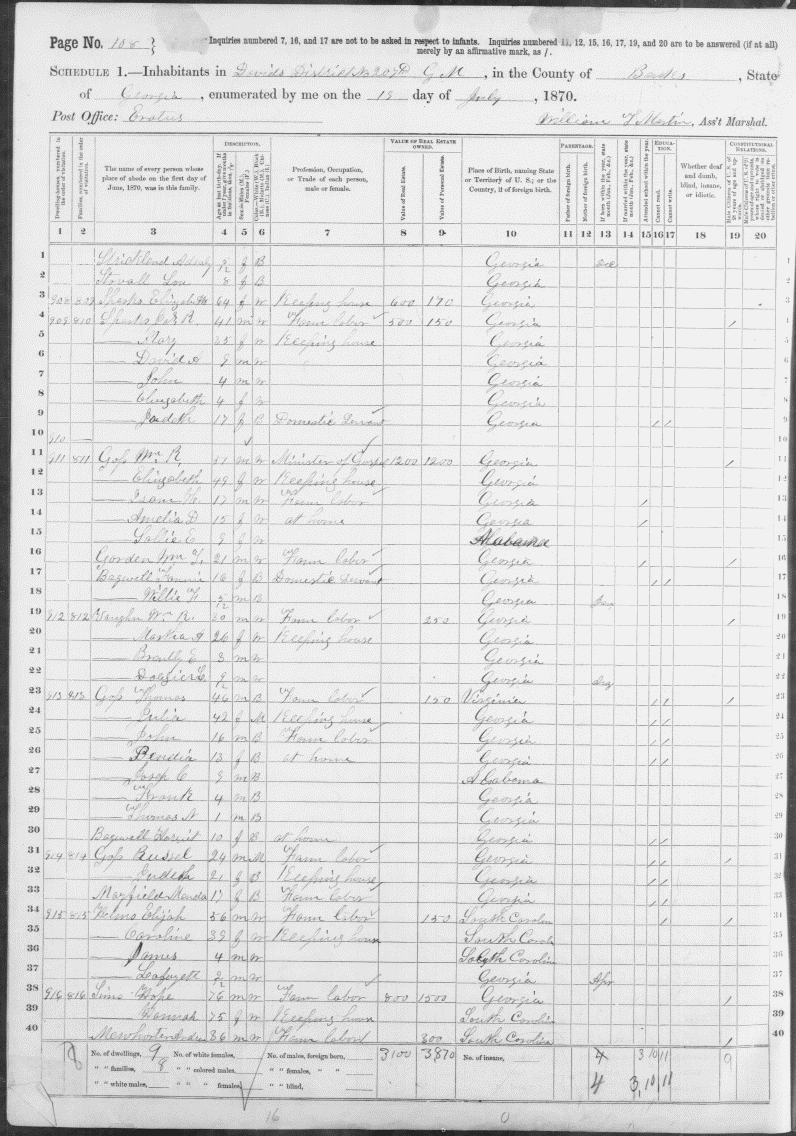 Page No. 108 } Inquiries numbered 7, 16, and 17 are not to be asked in respect to infants. Inquiries numbered 11, 12, 15, 16, 17, 19, and 20 are to be answered (if at all)
merely by an affirmative mark, as /.
SCHEDULE 1.—Inhabitants in Davids District No 207th G M, in the County of Banks, State
of Georgia, enumerated by me on the 19 day of July, 1870.
Post Office: Erastus William T Martin, Ass't Marshal.
DESCRIPTION. VALUE OF REAL ESTATE OWNED. PARENTAGE. EDUCATION. CONSTITUTIONAL RELATIONS.
Dwelling-houses, numbered in the order of visitation. Families, numbered in the order of visitation. The name of every person whose place of abode on the first day of June, 1870, was in this family. Profession, Occupation, or Trade of each person, male or female. Value of Real Estate. Value of Personal Estate. Place of Birth, naming State or Territory of U. S.; or the Country, if of foreign birth. Father of foreign birth. Mother of foreign birth. Attended school within the year. Cannot read. Cannot write. Whether deaf and dumb, blind, insane, or idiotic.
1 2 3 4 5 6 7 8 9 10 11 12 13 14 15 16 17 18 19 20
1 Strickland f B Georgia Dec
2 Stovall Lou 8 f B Georgia
3 908 809 Sparks Elizabeth 64 f W Keeping house 600 170 Georgia
4 909 810 Sparks R. 41 m W Farm labor 500 150 Georgia /
5 —— Mary 35 f W Keeping house Georgia
6 —— David A 9 m W Georgia
7 —— John 4 m W Georgia
8 —— Elizabeth 4 f W Georgia
9 —— Judeth 17 f B Domestic Servant Georgia / /
10 910 —
11 911 811 Goss Wm R. 51 m W Minister of Gospel 1200 1200 Georgia /
12 —— Elizabeth 49 f W Keeping house Georgia
13 —— Isam H. 17 m W Farm labor Georgia /
14 —— Amelia D 15 f W at home Georgia /
15 —— Sallie E 9 f W Alabama
16 Gorden Wm T. 21 m W Farm labor Georgia / /
17 Bagwell Fannie f B Domestic servant Georgia / /
18 —— Willie H 5/12 m B Georgia
19 912 812 Vaughn Wm R. 30 m W Farm labor 250 Georgia /
20 —— Martha A 26 f W Keeping house Georgia
21 —— 3 m W Georgia
22 —— m W Georgia Aug
23 913 813 Goss Thomas 46 m B Farm labor 150 Virginia / / /
24 —— Julia 42 f M Keeping house Georgia / /
25 —— John 16 m B Farm labor Georgia / /
26 —— 13 f B at home Georgia / /
27 —— Joseph C 9 m B Alabama
28 —— Frank 4 m B Georgia
29 —— Thomas A 1 m B Georgia
30 Bagwell Harriet 10 f B at home Georgia / /
31 914 814 Goss Russel 24 m M Farm labor Georgia / / /
32 —— Judeth 21 f B Keeping house Georgia / /
33 Mayfield Manda 17 f B Farm labor Georgia / /
34 915 815 Helms Elijah 56 m W Farm labor 150 South Carolin / /
35 —— Caroline 39 f W Keeping house South Caroli
36 —— James 4 m W South Carolin
37 —— Lafayett 2/12 m W Georgia Apr
38 916 816 Sims Hope 76 m W Farm labor 800 1500 Georgia /
39 —— Hannah 75 f W Keeping house South Carolin
40 36 m W Farm labor 300 South Carolin /
8 No. of dwellings, 9 No. of white females, No. of males, foreign born, 3100 3870 No. of insane, 4 3 10 11 9
" " families, 8 " " colored males, " " females, " "
" " white males, " " " females, " " blind, 4 3, 10 11
16 0